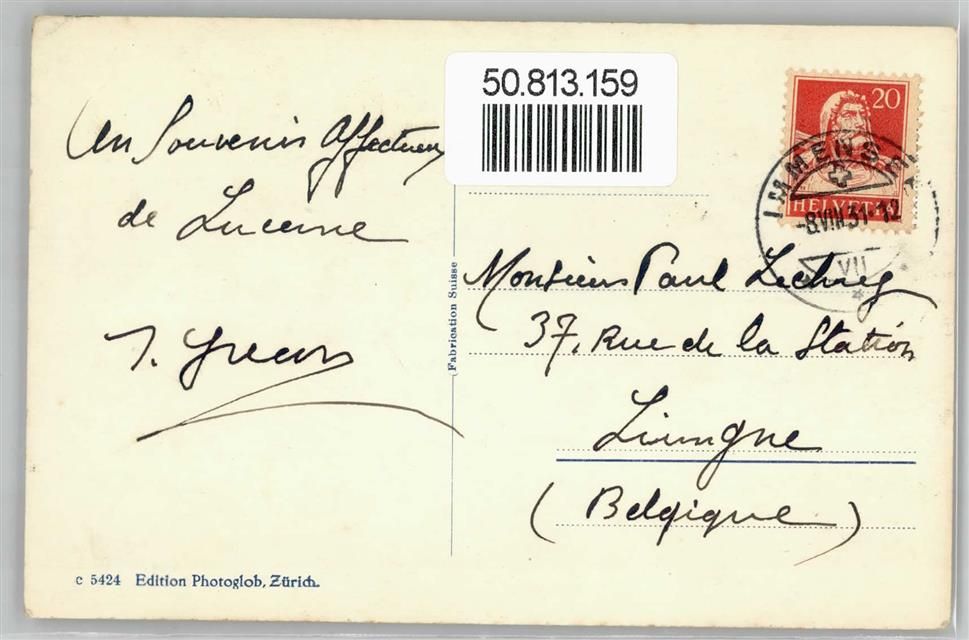 50.813.159
Un Souvenir Affectueux
de Lucerne
20
HELVETIA
IMMENSEE
-8.VIII.31-12
VII
Fabrication Suisse
Monsieur Paul
37, Rue de la Station
(Belgique)
c 5424 Edition Photoglob, Zürich.